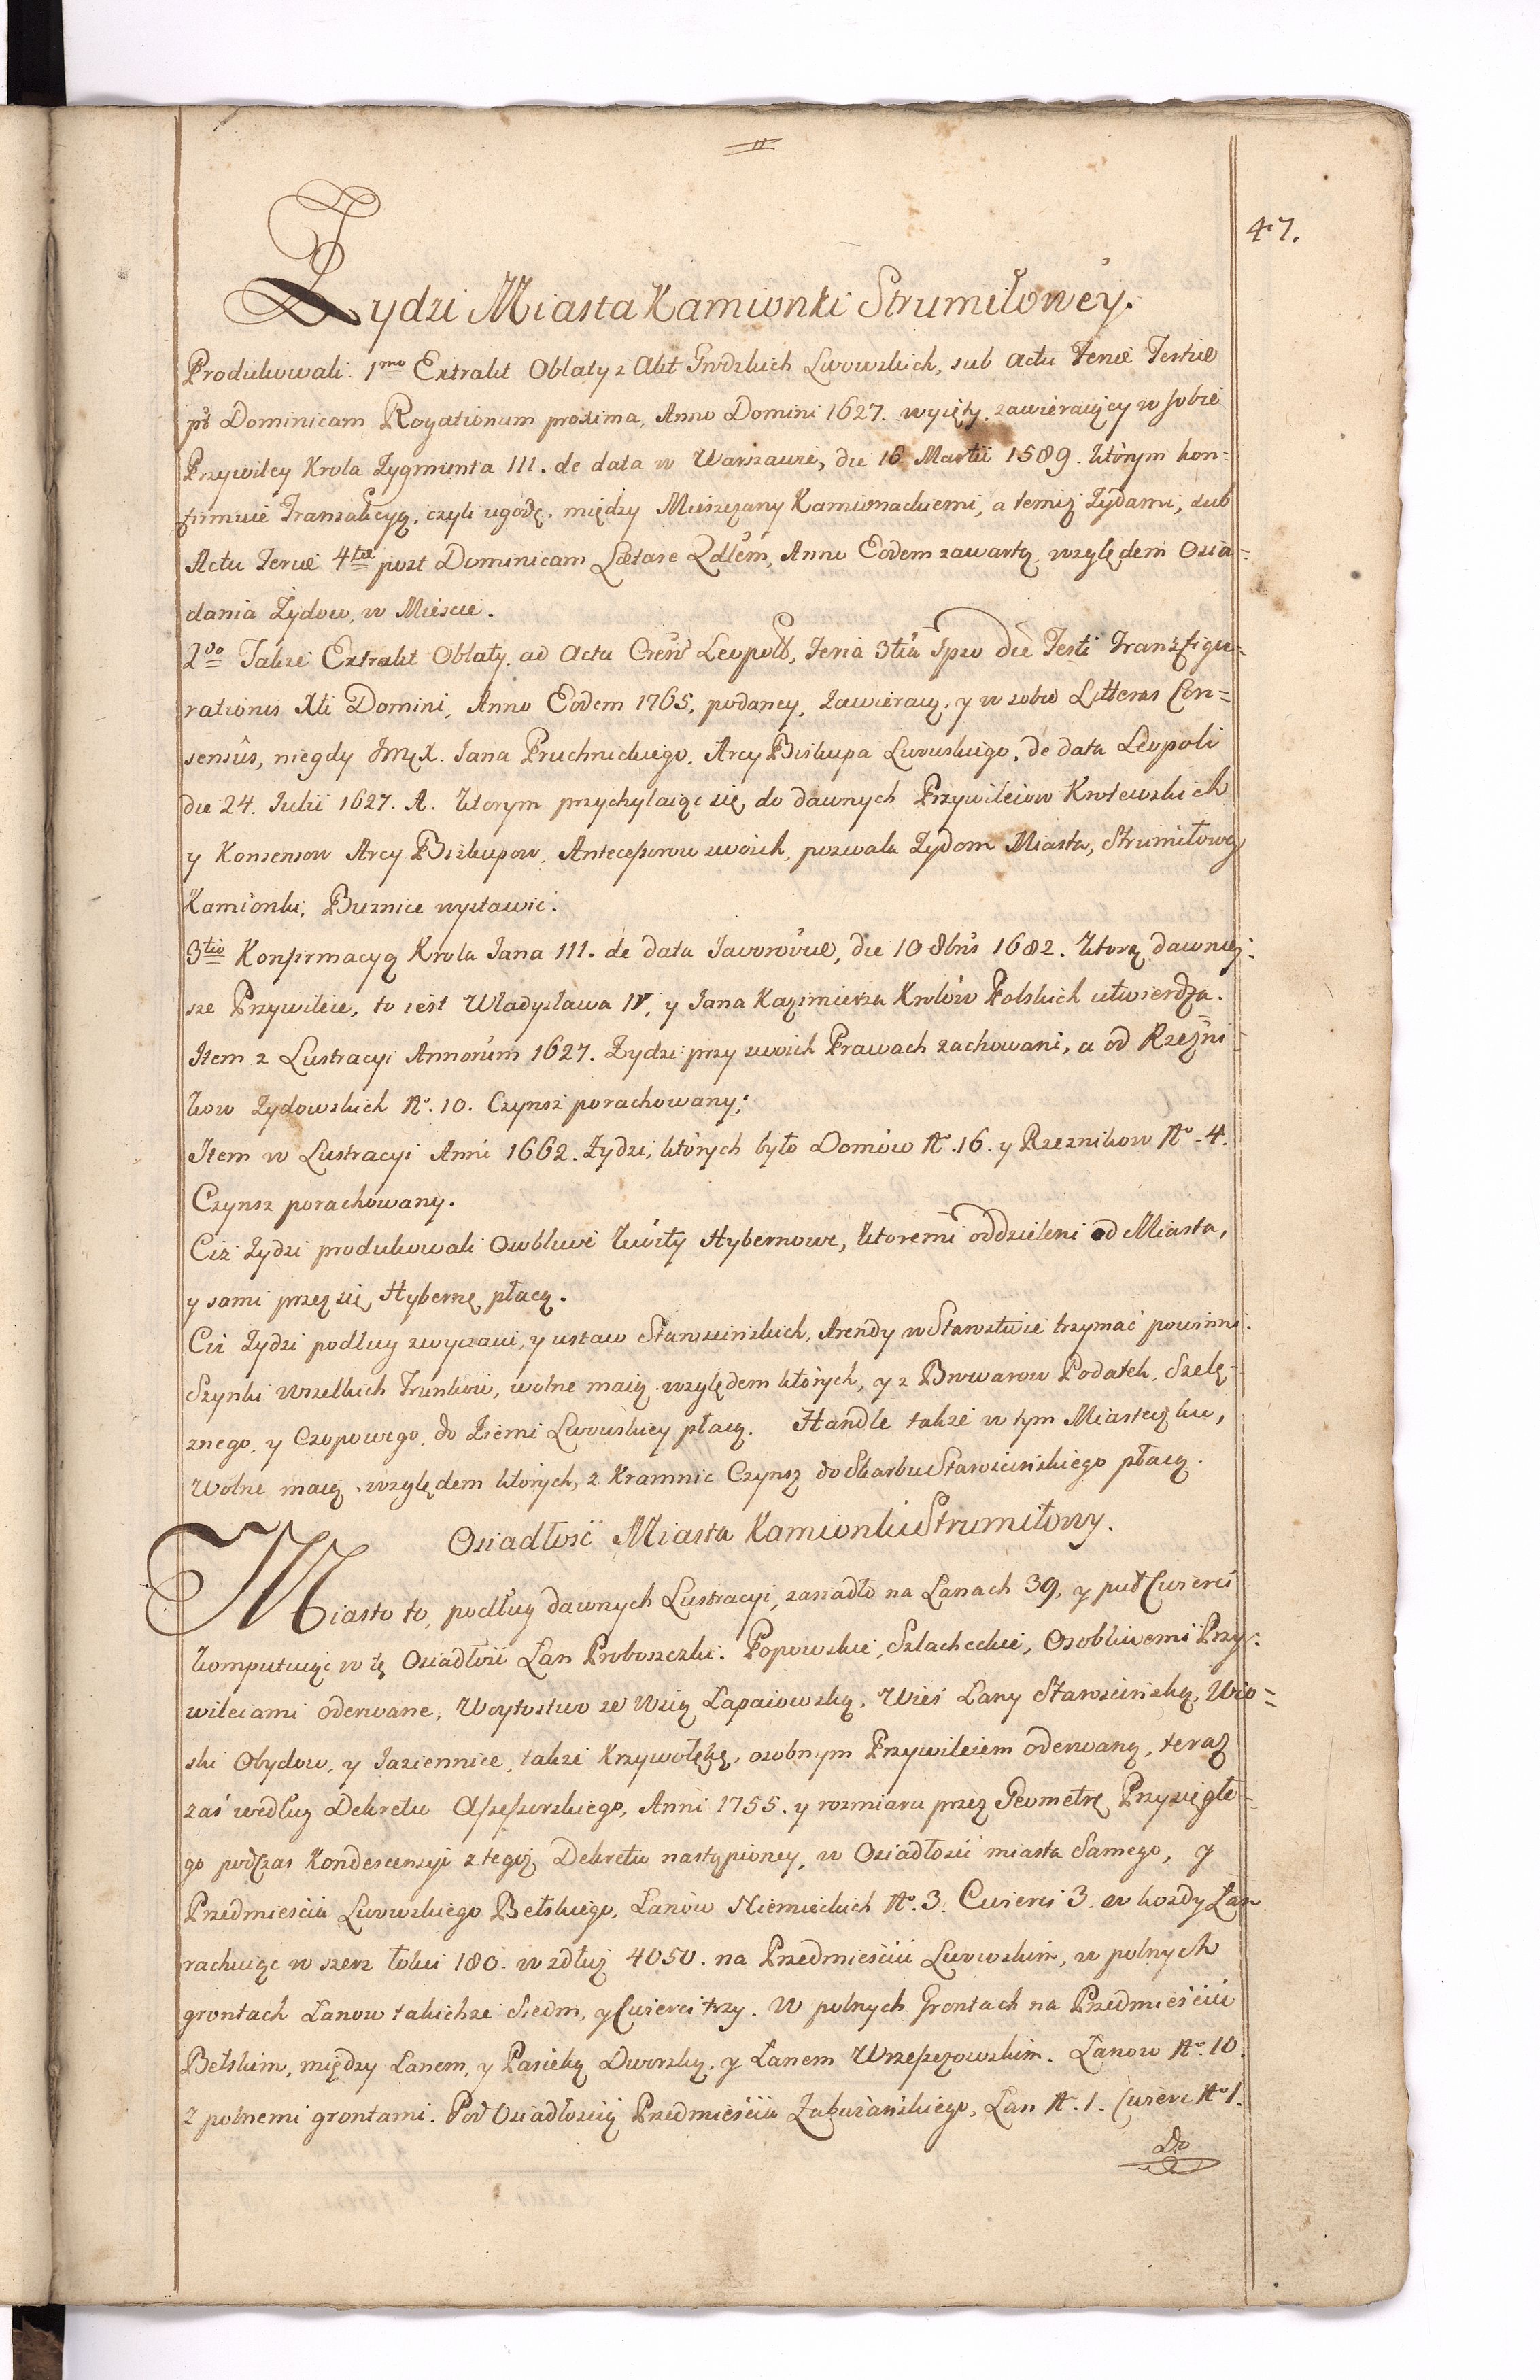 47.
Zydzi Miasta Kamionki Strumiłowey.
Produkowali. 1mo Extrakt Oblaty z Akt Grodzkich Lwowskich, sub Actu Feriæ Tertiæ
pt Dominicam Rogationum proxima, Anno Domini 1627. wyięty. zawieraiący w sobie
Przywiley Krola Zygmunta III. de data w Warszawie, die 16 Martii 1589. którym kon=
firmuie Tranzakcyą, czyli ugodę, między Mieszczany Kamionackiemi, a temiż Zydami, sub
Actu Feriæ 4tæ post Dominicam Lætare Qdlem, Anno Eodem zawartą, względem Osia=
dania Zydow, w Mieście.
2do Także Extrakt Oblaty, ad Acta Leopold, Feria 3tia Ipso die Festi Transfigu=
rationis Xti Domini, Anno Eodem 1765, podaney, Zawieraią, y w sobie Litteras Con=
sensûs, niegdy JMX. Jana Pruchnickiego, Arcy Biskupa Lwowskiego, de data Leopoli
die 24. Julii 1627. A. ktorym przychylaiąc się do dawnych Przywileiow Krolewskich
y Konsensow Arcy Biskupow, Antecessorow swoich, pozwala Zydom Miasta, Strumiłowey
Kamionki, Buznice wystawić.
3tio Konfirmacyą Krola Jana III. de data Javoroviæ, die 10 8bris 1682. ktorą dawniey=
sze Przywileie, to iest Władysława IV, y Jana Kazimierza Krolów Polskich utwierdza.
Item z Lustracyi Annorum 1627. Zydzi przy swoich Prawach zachowani, a od Rzeźni=
kow Zydowskich No. 10. Czynsz porachowany;
Item w Lustracyi Anni 1662. Zydzi, których było Domów N. 16. y Rzeznikow No. 4.
Czynsz porachowany.
Ciż Zydzi produkowali Osobliwe kwity Hybernowe, ktoremi oddzieleni od Miasta,
y sami przez się, Hybernę płacą.
Ciż Zydzi podług zwyczaiu, y ustaw Starościńskich, Arendy w Starostwie trzymać powinni.
Szynki wszelkich Trunkow, wolne maią, względem których, y z Browarow Podatek, Szelę=
znego, y Czopowego, do Ziemi Lwowskiey płacą. Handle także w tym Miasteczku,
Wolne maią, względem których, z Kramnic Czynsz do Skarbu Starościńskiego płacą.
Osiadłość Miasta Kamionki Strumiłowy.
Miasto to, podług dawnych Lustracyi, zasiadło na Łanach 39, y puł Cwierci
komputuiąc w tę Osiadłość Łan Proboszczki. Popowskie, Szlacheckie, Osobliwemi Przy=
wileiami oderwane, Woytostwo ze Wsią Łapaiowską, Wieś Łany Starościńską, Wio=
ski Obydow, y Jaziennice, także Krzywółękę, osobnym Przywileiem oderwaną, teraz
zaś według Dekretu Assessorskiego, Anni 1755. y rozmiaru przez Geometrę Przysięgłe=
go podczas Kondescensyi z tegoż Dekretu nastąpioney, w Osiadłości miasta Samego, y
Przedmieścia Lwowskiego Bełskiego, Łanów Niemieckich No. 3. Cwierci 3. w kozdy Łan
rachuiąc w szerz łokci 180. w zdłuż 4050. na Przedmieściu Lwowskim, w polnych
grontach Łanow takichze Siedm, y Cwierci trzy. W polnych Grontach na Przedmieściu
Bełskim, między Łanem, y Pasieką Dworską, y Łanem Wrzeszczowskim. Łanow No. 10.
z polnemi grontami. Pod Osiadłością Przedmieścia Zabużańskiego, Łan N. 1. Cwierc No 1.
Do